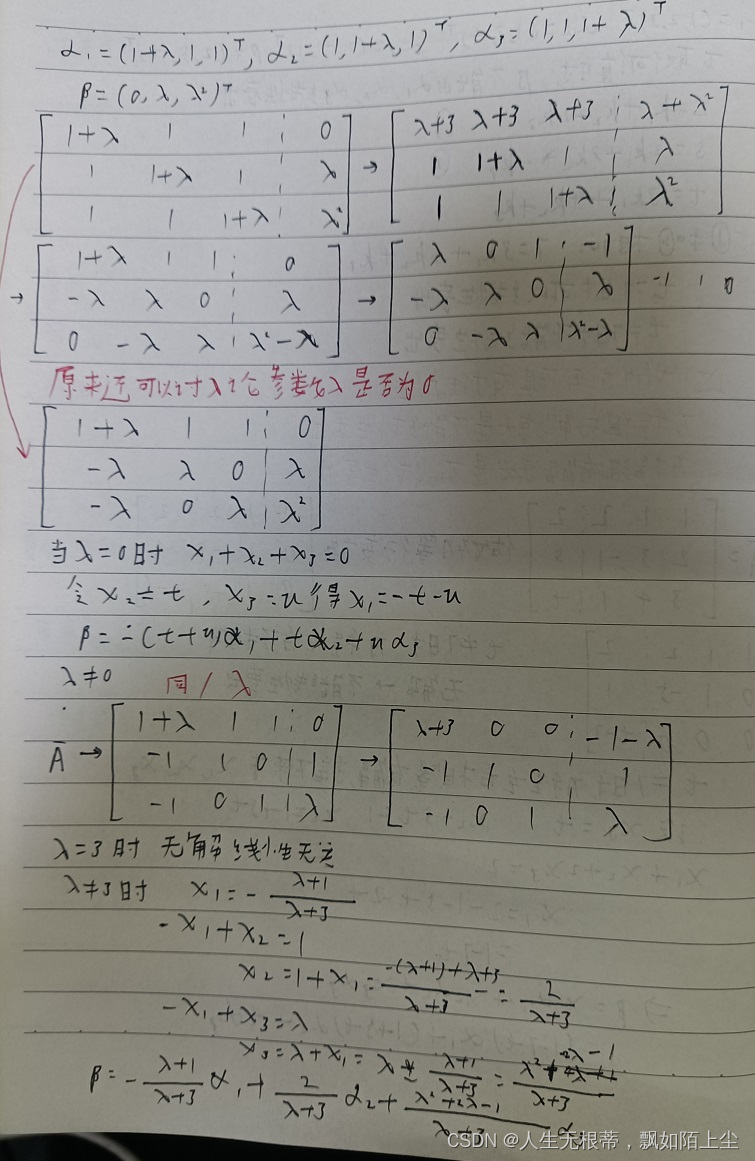 α₁=(1+λ,1,1)ᵀ, α₂=(1,1+λ,1)ᵀ, α₃=(1,1,1+λ)ᵀ
β=(0,λ,λ²)ᵀ
[1+λ 1 1 ¦ 0] → [λ+3 λ+3 λ+3 ¦ λ+λ²]
[1 1+λ 1 ¦ λ] [1 1+λ 1 ¦ λ]
[1 1 1+λ ¦ λ²] [1 1 1+λ ¦ λ²]
→ [1+λ 1 1 ¦ 0] → [λ 0 1 ¦ -1]
[-λ λ 0 ¦ λ] [-λ λ 0 ¦ λ] -1 1 0
[0 -λ λ ¦ λ²-λ] [0 -λ λ ¦ λ²-λ]
原来还可以讨论参数λ是否为0
[1+λ 1 1 ¦ 0]
[-λ λ 0 ¦ λ]
[-λ 0 λ ¦ λ²]
当λ=0时 x₁+x₂+x₃=0
令x₂=t, x₃=u 得x₁=-t-u
β=-(t+u)α₁+tα₂+uα₃
λ≠0 同/λ
Ā → [1+λ 1 1 ¦ 0] → [λ+3 0 0 ¦ -1-λ]
[-1 1 0 ¦ 1] [-1 1 0 ¦ 1]
[-1 0 1 ¦ λ] [-1 0 1 ¦ λ]
λ=3时 无解 线性无关
λ≠3时 x₁=-(λ+1)/(λ+3)
-x₁+x₂=1
x₂=1+x₁=(-(λ+1)+λ+3)/(λ+3)=2/(λ+3)
-x₁+x₃=λ
x₃=λ+x₁=λ-(λ+1)/(λ+3)=(λ²+2λ-1)/(λ+3)
β=-(λ+1)/(λ+3)α₁+2/(λ+3)α₂+(λ²+2λ-1)/(λ+3)α₃
CSDN @人生无根蒂，飘如陌上尘